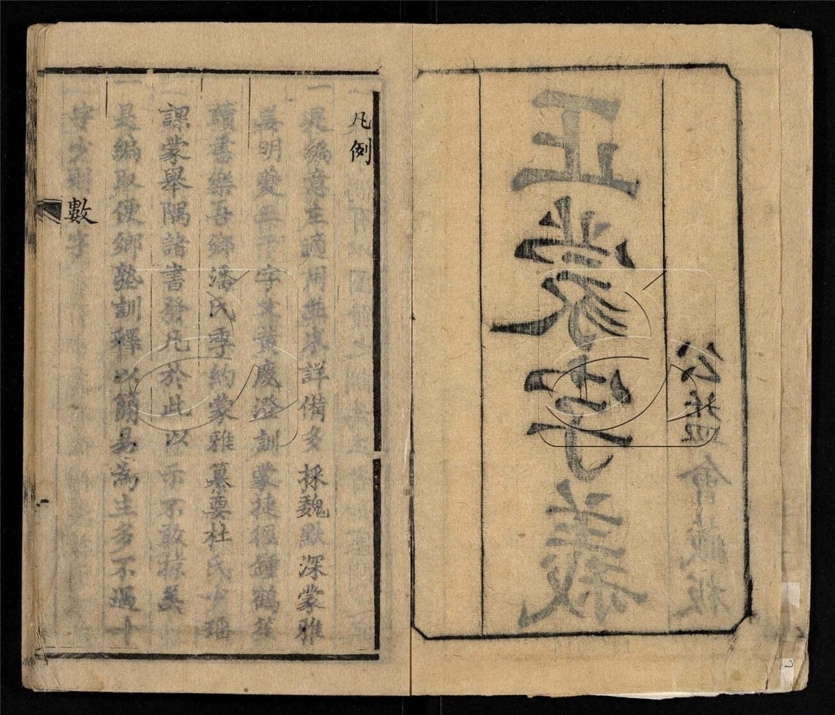 公益會藏板
正蒙字義
凡例
一是編意在適用無求詳備多採魏默深蒙雅
姜明愛年千字黃慶澄訓蒙捷徑鍾鶴笙
讀書樂吾鄉潘氏季約蒙雅纂要杜氏少瑤
課蒙舉隅諸書發凡於此以示不敢掠美
一是編取便鄉塾訓釋以簡易為主多不過十
字少則數字